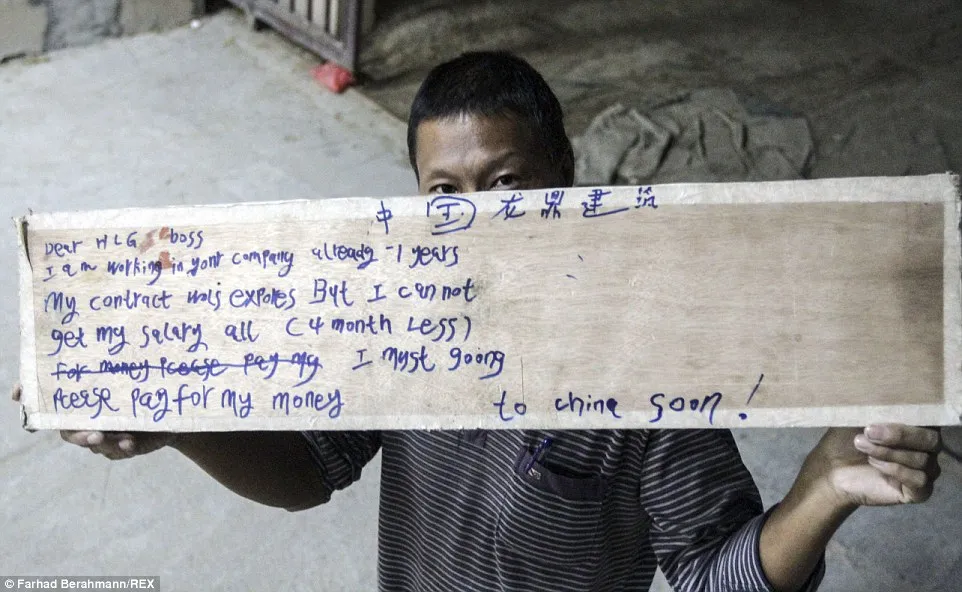 中国龙鼎建筑
Dear HLG boss
I am working in yonr company already -1 years
My contract wolj expores But I can not
get my salary all (4 month Less)
For money Pcease pay my I myst goong
Pcease pay for my money to china soon!
© Farhad Berahmann/REX